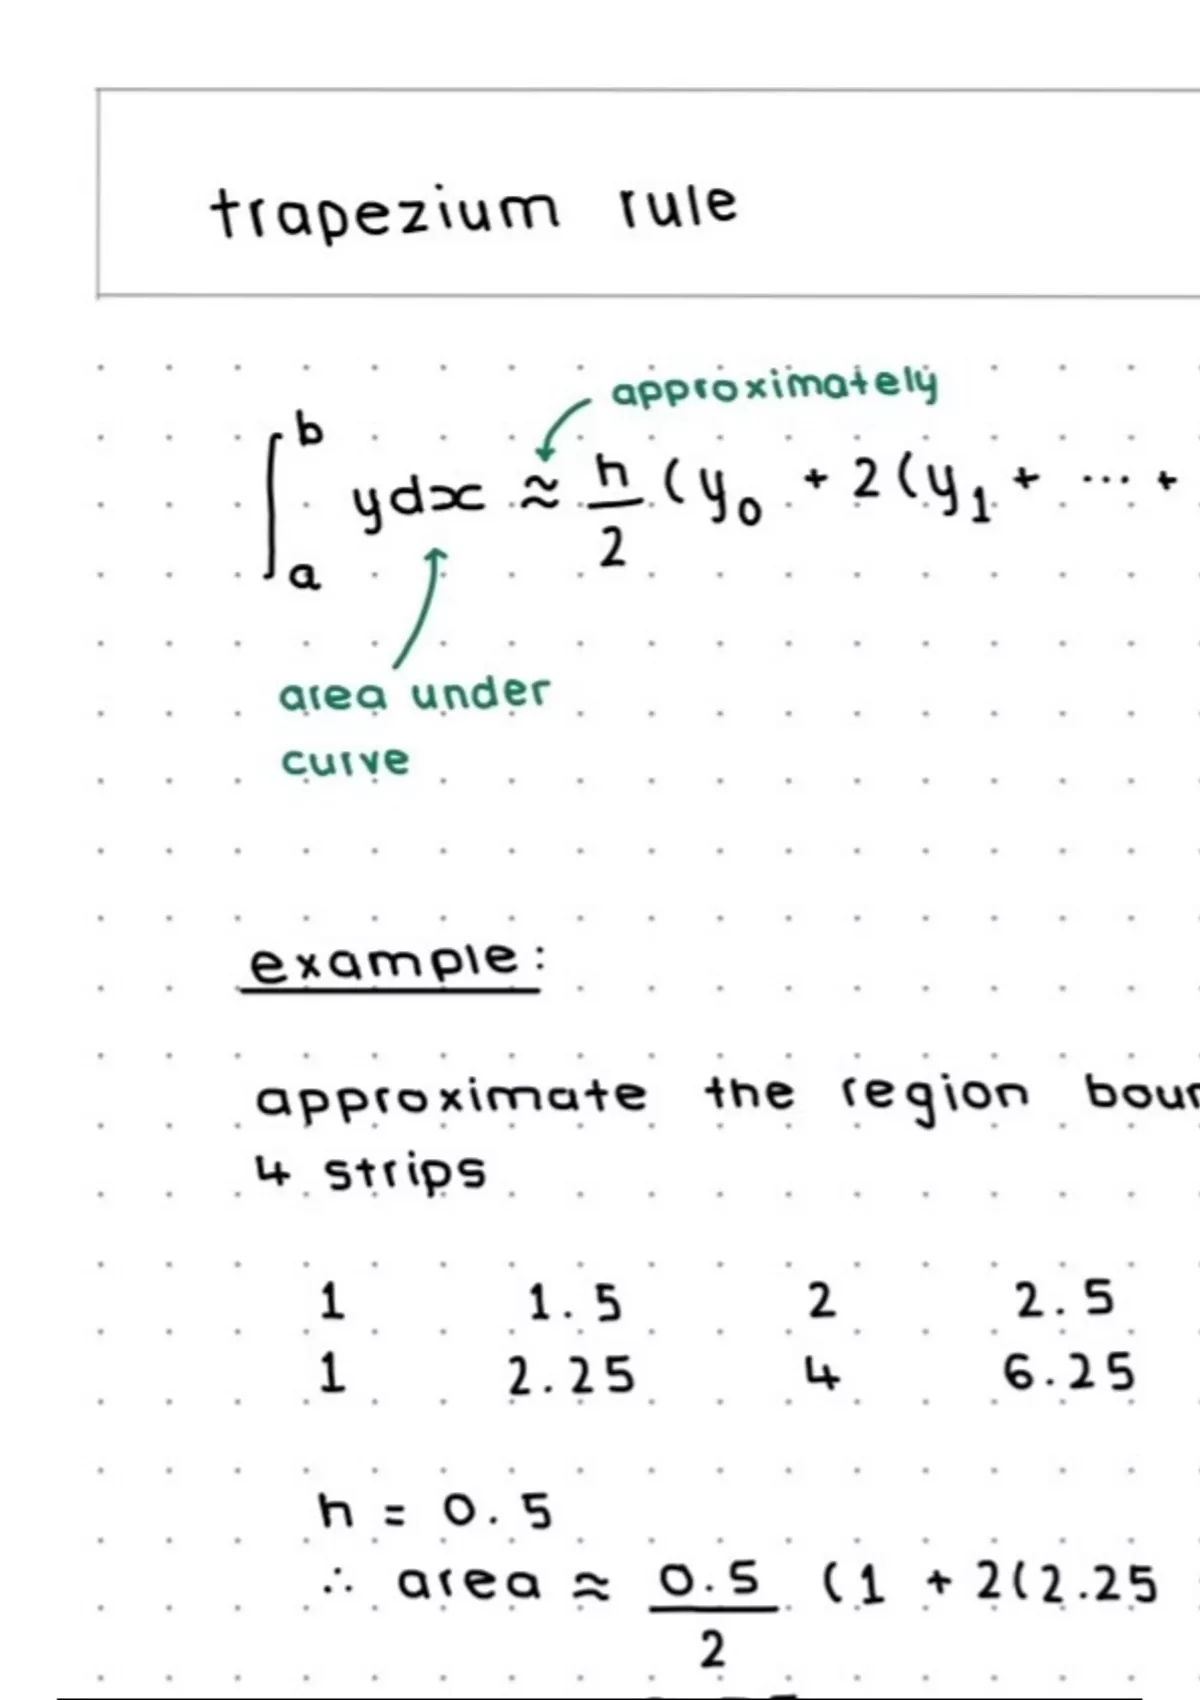 trapezium rule
approximately
∫ₐᵇ ydx ≈ h/2 (y₀ + 2(y₁ + ... +
area under
curve
example:
approximate the region
4 strips
1 1.5 2 2.5
1 2.25 4 6.25
h = 0.5
∴ area ≈ 0.5/2 (1 + 2(2.25